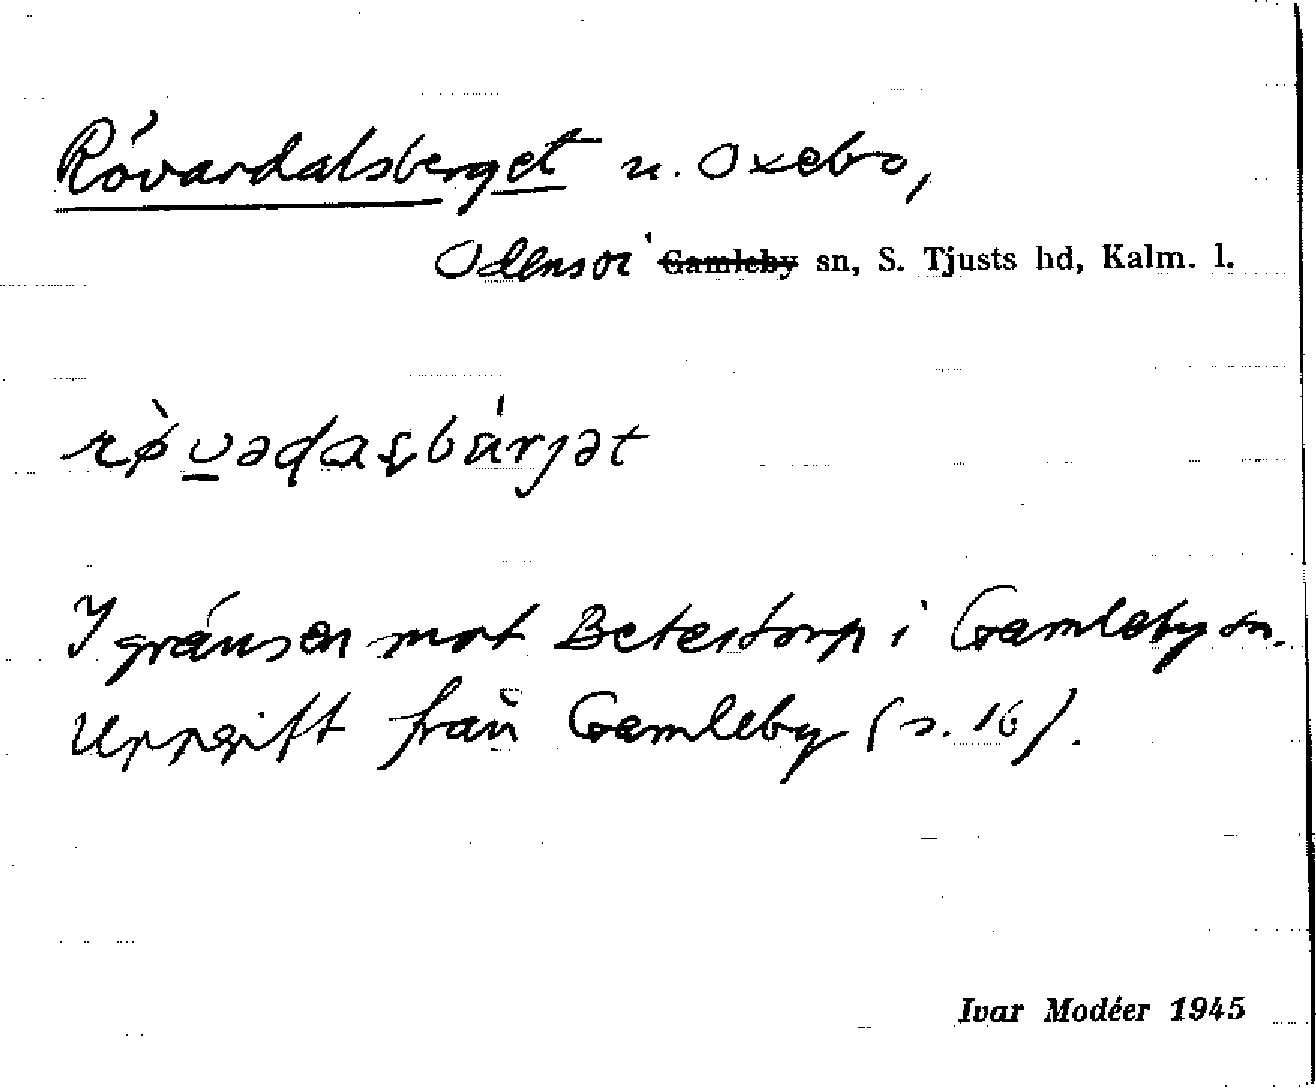 Rövardalsberget u. Oxebo,
Odensvi Gamleby sn, S. Tjusts hd, Kalm. l.
rø̀vədaʂbárjət
I gränsen mot Beterstorp i Gamleby sn.
Uppgift från Gamleby (s. 16).
Ivar Modéer 1945